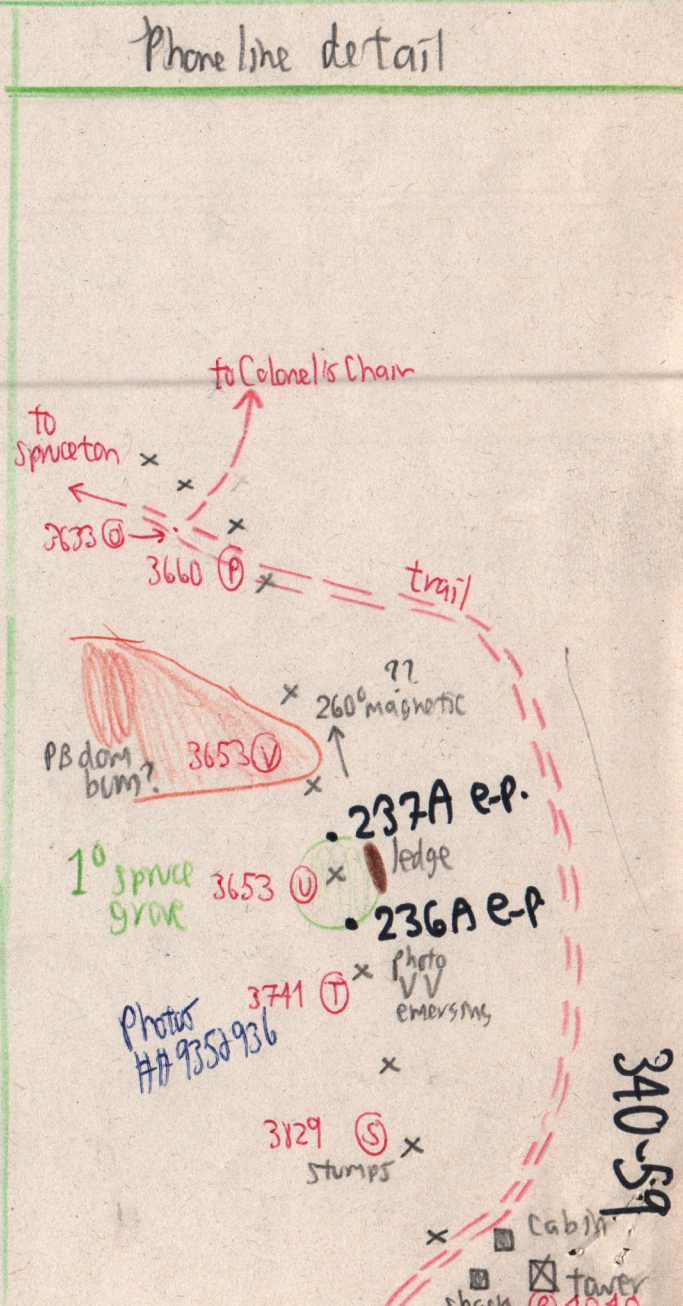 Phone line detail
to Colonel's Chair
to
Spruceton
3633 O
3660 P
trail
??
260° magnetic
3653 V
PB dom
burn?
237A e-p.
ledge
1° spruce
grove
3653 U
236A e-p
photo
VV
emerging
3741 T
Photos
## 935 & 936
3829 S
stumps
340-59
cabin
tower